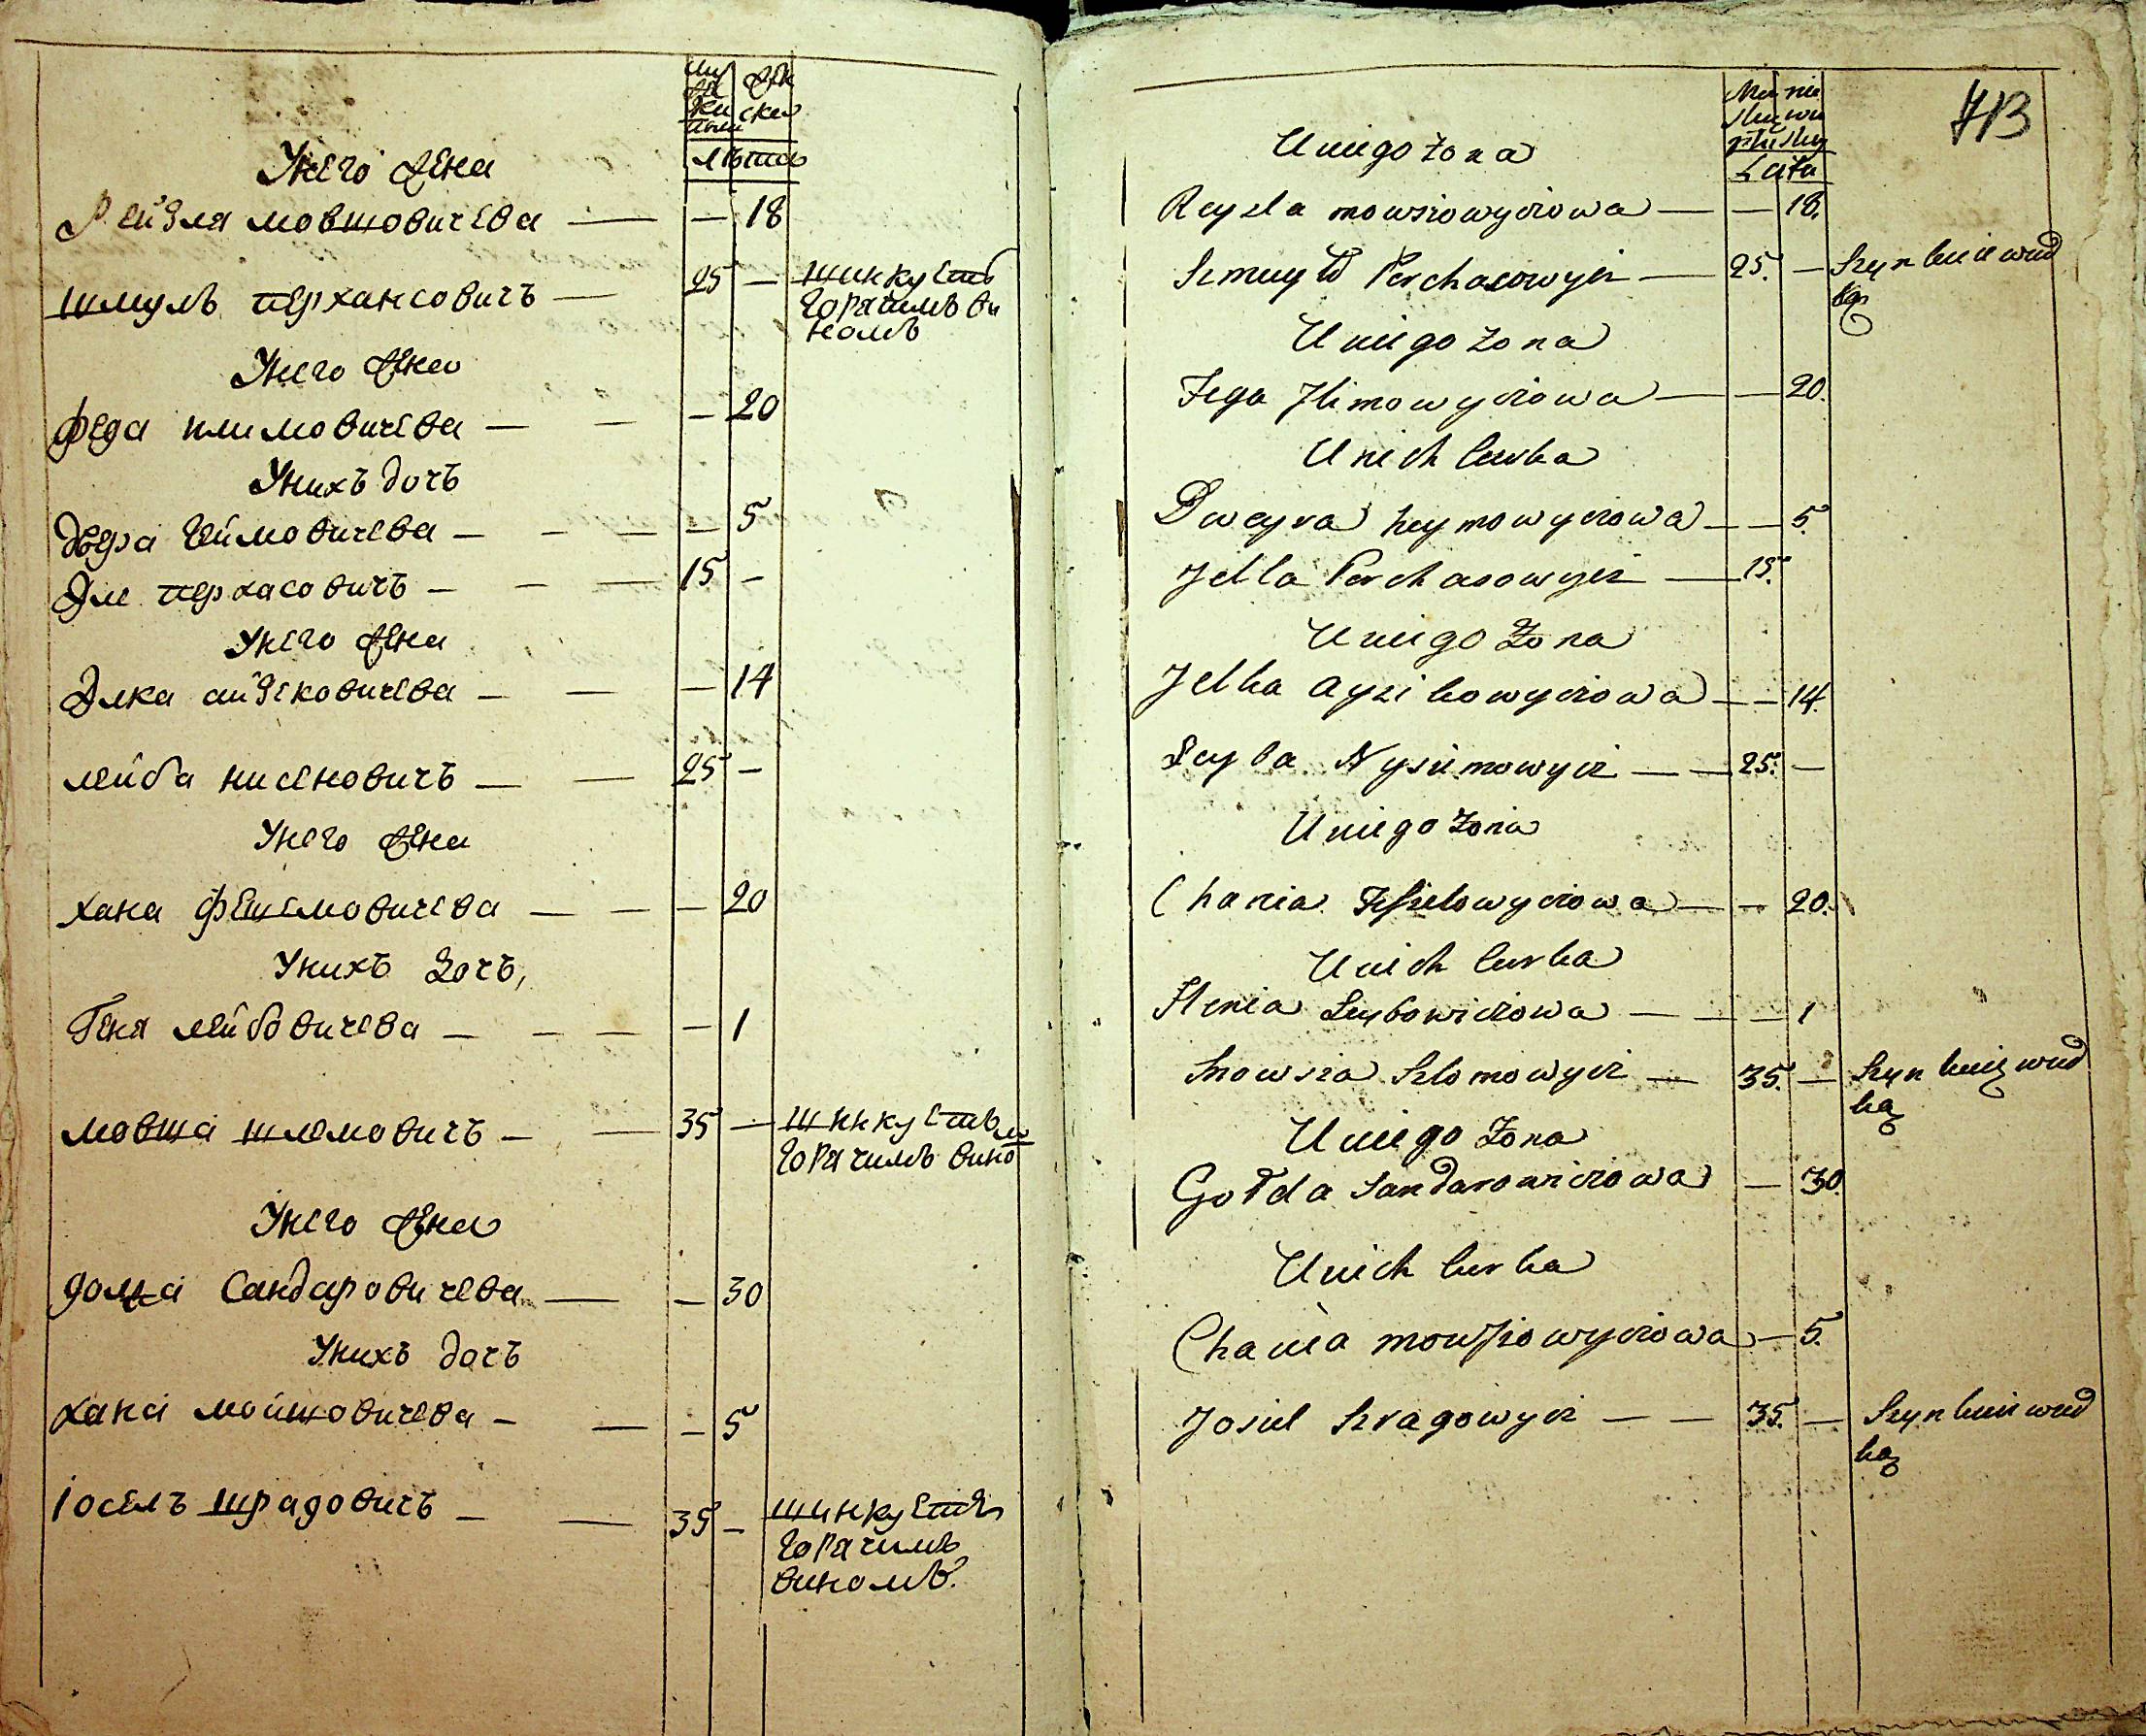 Му жс
жс ска
ки
пол
лѣта
Унего жена
Рейзля мовшовичева — — 18
шмуль перхансовичъ — 25 — шинкуетъ
горячимъ ви
номъ
Унего жена
федя климовичева — — — 20
Унихъ дочь
двера геймовичева — — — — 5
Эле перхасовичъ — — — 15 —
Унего жена
Элка айзековичева — — — 14
лейба нисеновичъ — — 25 —
Унего жена
хана фешелмовичева — — — 20
Унихъ дочь,
Геня лейбовичева — — — — 1
мовша шлемовичъ — — 35 — шинкуетъ
горячимъ вино
м
Унего жена
голда Сандаровичева — — 30
Унихъ дочъ
хана мойшовичева — — — 5
Іосель шрадовичъ — — 35 — шинкуетъ
горячимъ
виномъ.
713
Lata
U niego żona
Reyzla mowsiowyczowa — — 18.
Szmuyło Perchasowycz — 25. — Szynkuie wud
ką
U niego żona
Fega Klimowyczowa — — 20.
U nich curka
Dweyra heymowyczowa — — 5.
Jella Perchasowycz — 15.
U niego żona
Jelka Ayzikowyczowa — — 14.
Leyba Nysiemowycz — — 25. —
U niego żona
Chania Feszelowyczowa — — 20.
U nich curka
Henia Leybowiczowa — — — 1
Mowsza Szlomowycz — 35. — Szynkuię wud
ką
U niego żona
Gołda Sandarowiczowa — 30.
U nich curka
Chania mowsiowyczowa — 5.
Josiel Szragowycz — — 35. — Szynkuie wud
ką